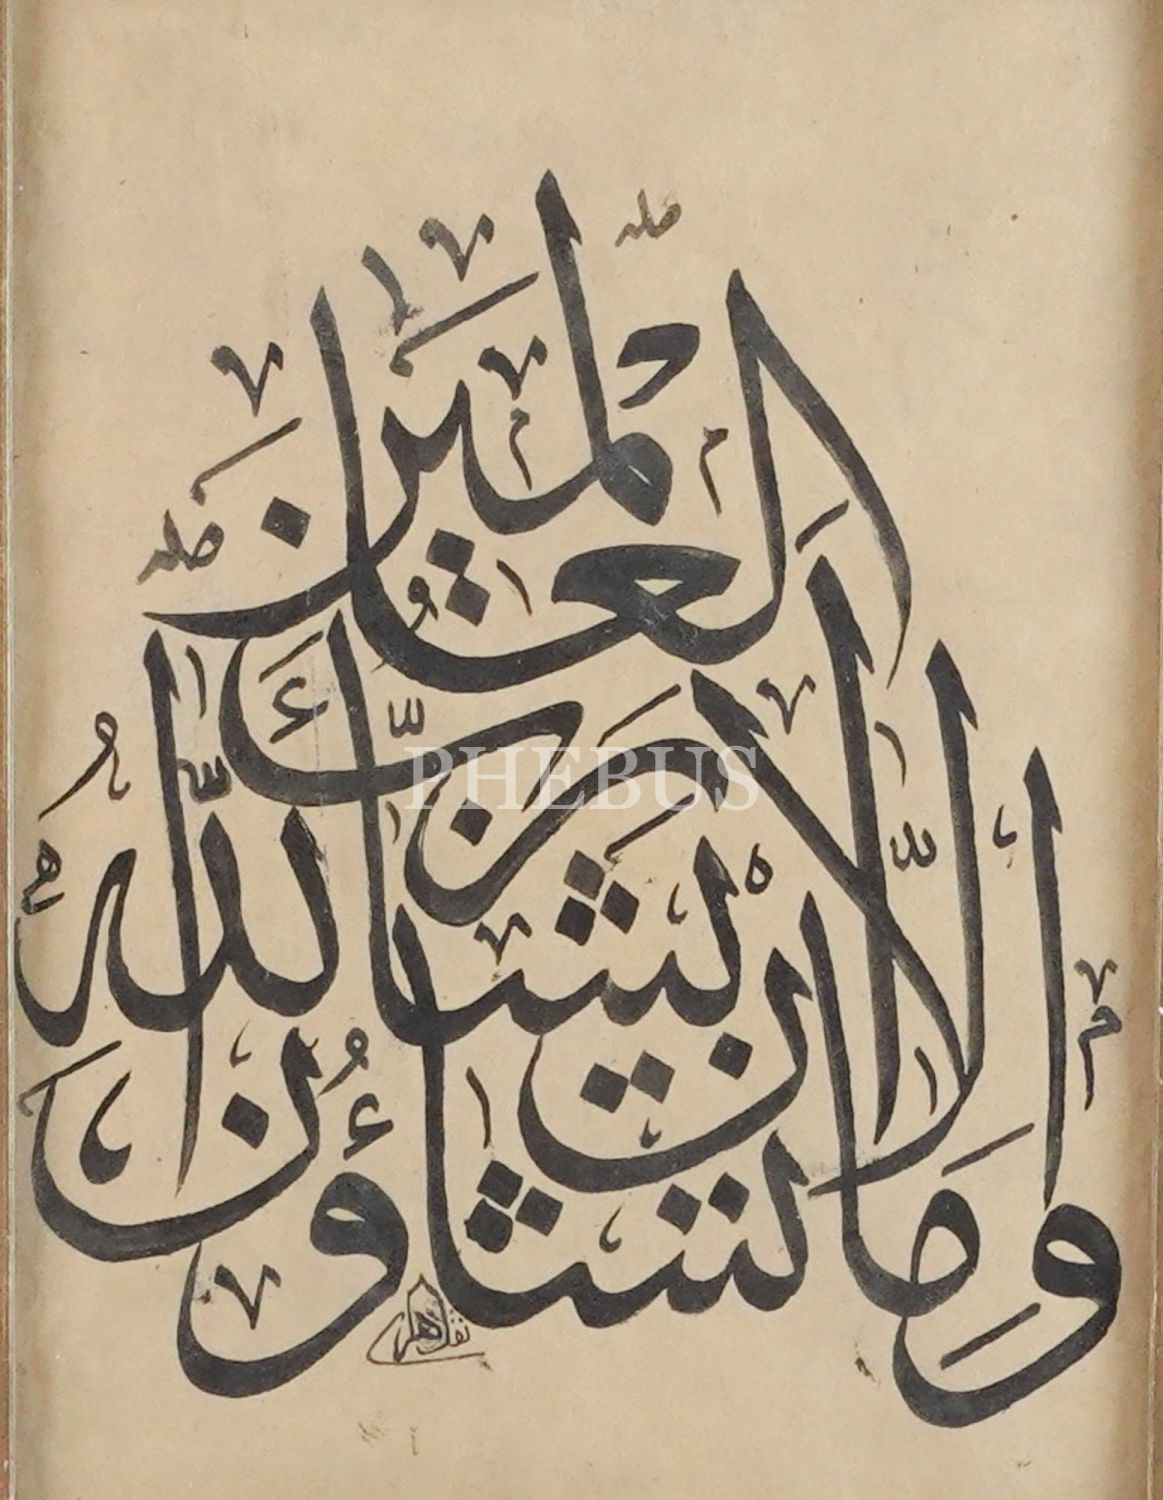 وَمَا تَشَاؤُنَ إِلَّا أَنْ يَشَاءَ اللّٰهُ رَبُّ الْعَالَمِينَ
PHEBUS